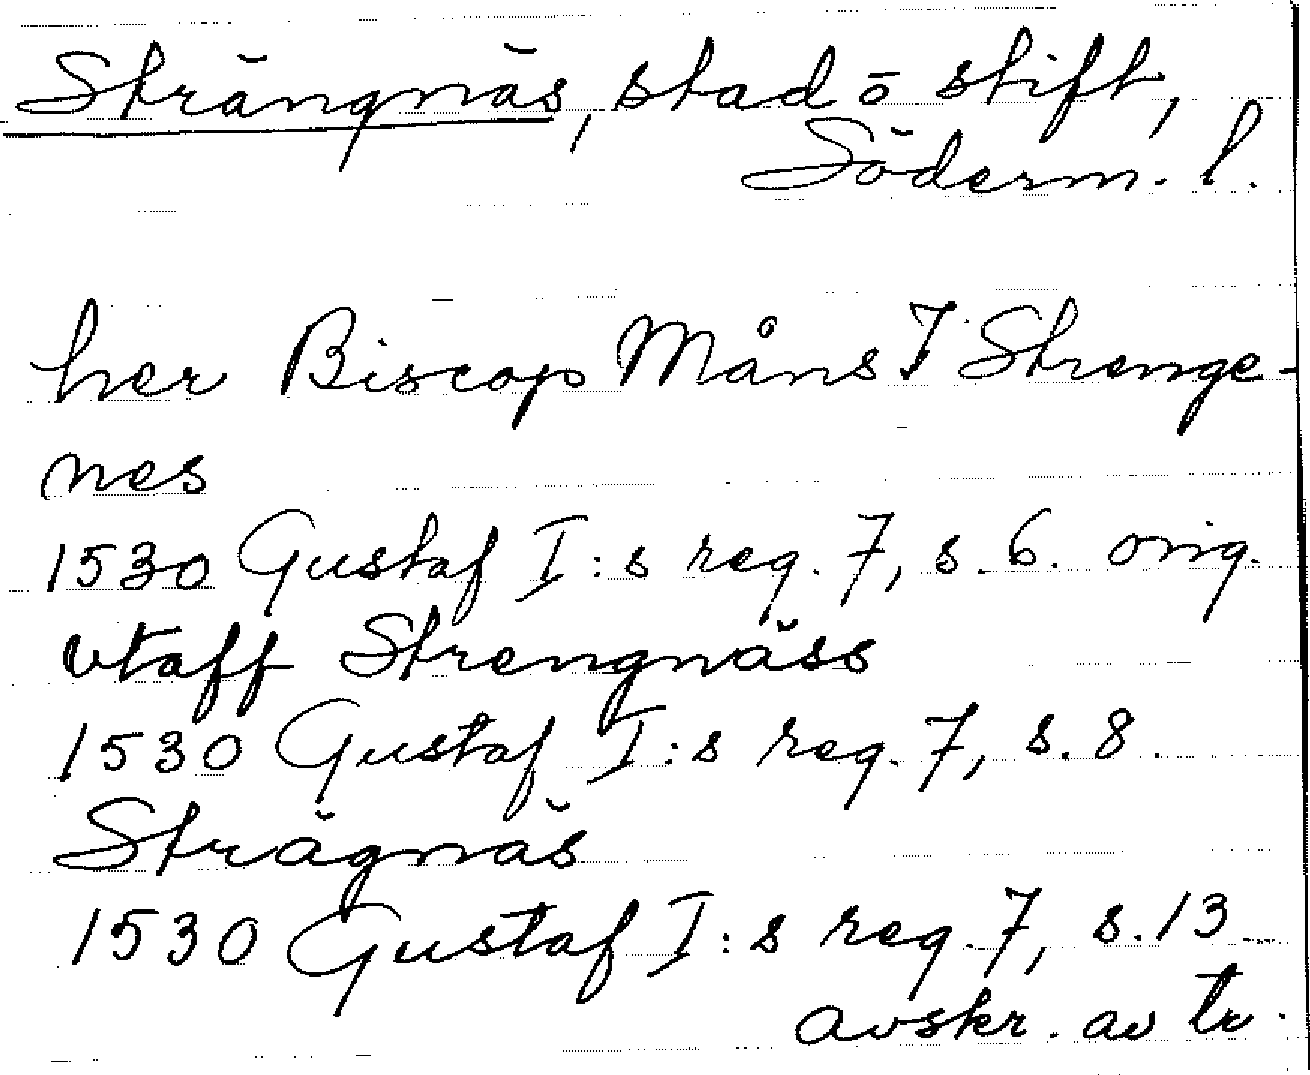 Strängnäs, stad o stift,
Söderm. l.
her Biscop Måns I Strenge-
nes
1530 Gustaf I:s reg. 7, s. 6. orig.
vtaff Strengnäss
1530 Gustaf I:s reg. 7, s. 8.
Strägnäs
1530 Gustaf I:s reg. 7, s. 13
avskr. av tr.